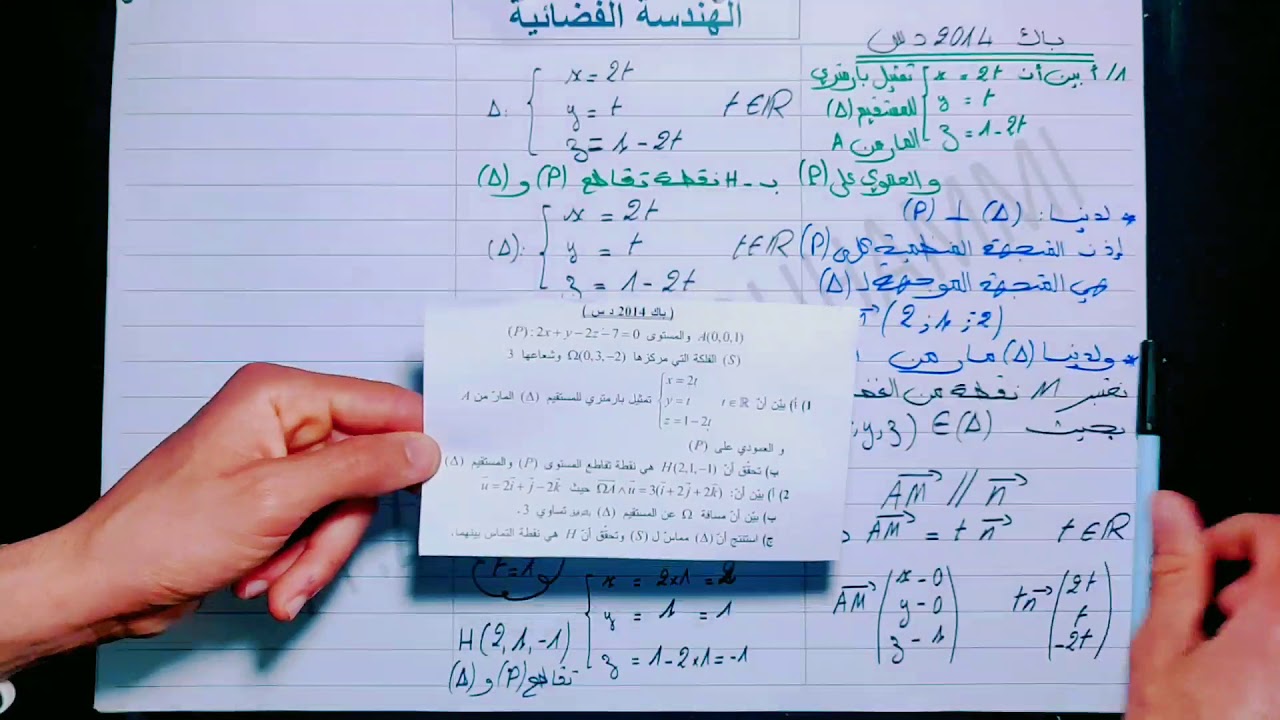 الهندسة الفضائية
باك 2014 د س
1/ أ بين أن { x = 2t تمثيل بارمتري
y = t للمستقيم (Δ)
z = 1 - 2t المار من A
والعمودي على (P)
* لدينا: (Δ) ⊥ (P)
إذن المتجهة المنظمية على (P)
هي المتجهة الموجهة لـ (Δ)
n⃗(2;1;-2)
* ولدينا (Δ) مار من
نعتبر M نقطة من
بحيث ;y,z) ∈ (Δ)
AM⃗ // n⃗
AM⃗ = t n⃗ t ∈ ℝ
AM⃗ (x - 0 tn⃗ (2t
y - 0 t
z - 1) -2t)
Δ: { x = 2t
y = t t ∈ ℝ
z = 1 - 2t
ب - H نقطة تقاطع (P) و (Δ)
(Δ): { x = 2t
y = t t ∈ ℝ
z = 1 - 2t
( باك 2014 د س )
A(0,0,1) والمستوى (P): 2x + y - 2z - 7 = 0
(S) الفلكة التي مركزها Ω(0,3,-2) وشعاعها 3
1) أ) بيّن أنّ { x = 2t
y = t t ∈ ℝ تمثيل بارمتري للمستقيم (Δ) المارّ من A
z = 1 - 2t
و العمودي على (P)
ب) تحقّق أنّ H(2,1,-1) هي نقطة تقاطع المستوى (P) والمستقيم (Δ)
2) أ) بيّن أنّ: ΩA⃗ ∧ u⃗ = 3(i⃗ + 2j⃗ + 2k⃗) حيث u⃗ = 2i⃗ + j⃗ - 2k⃗
ب) بيّن أنّ مسافة Ω عن المستقيم (Δ) تساوي 3.
ج) استنتج أنّ (Δ) مماسّ ل (S) وتحقّق أنّ H هي نقطة التماس بينهما.
t = 1
{ x = 2x1 = 2
y = 1 = 1
z = 1 - 2x1 = -1
H(2,1,-1)
تقاطع (P) و (Δ)